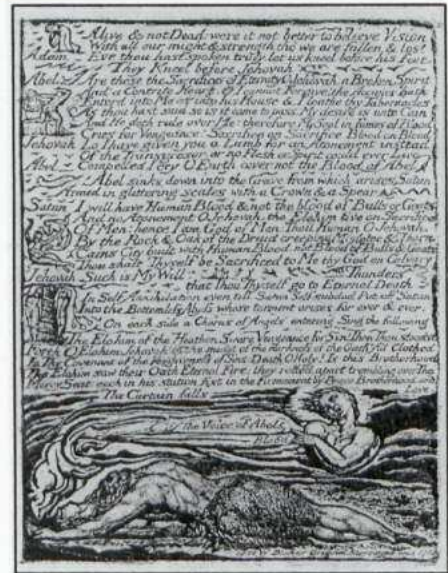 Alive & not Dead were it not better to believe Vision
With all our might & strength tho we are fallen & lost
Adam Eve thou hast spoken truly let us kneel before his feet.
They Kneel before Jehovah
Abel Are these the Sacrifices of Eternity O Jehovah, a Broken Spirit
And a Contrite Heart. O I cannot Forgive! the Accuser hath
Enterd into Me as into his House & I loathe thy Tabernacles
As thou hast said so is it come to pass: My desire is unto Cain
And He doth rule over Me: therefore My Soul in fumes of Blood
Cries for Vengeance: Sacrifice on Sacrifice Blood on Blood
Jehovah Lo I have given you a Lamb for an Atonement instead
Of the Transgressor, or no Flesh or Spirit could ever Live
Abel Compelled I cry O Earth cover not the Blood of Abel
Abel sinks down into the Grave from which arises Satan
Armed in glittering Scales with a Crown & a Spear
Satan I will have Human Blood & not the blood of Bulls or Goats
And no Atonement O Jehovah the Elohim live on Sacrifice
Of Men: hence I am God of Men: Thou Human O Jehovah.
By the Rock & Oak of the Druid creeping Mistletoe & Thorn
Cains City built with Human Blood, not Blood of Bulls & Goats
Thou shalt Thyself be Sacrificed to Me thy God on Calvary
Jehovah Such is My Will. Thunders
that Thou Thyself go to Eternal Death
In Self Annihilation even till Satan Self-subdud Put off Satan
Into the Bottomless Abyss whose torment arises for ever & ever.
On each side a Chorus of Angels entering Sing the following
The Elohim of the Heathen Swore Vengeance for Sin! Then Thou stoodst
Forth O Elohim Jehovah! in the midst of the darkness of the Oath! All Clothed
In Thy Covenant of the Forgiveness of Sins: Death O Holy! Is this Brotherhood
The Elohim saw their Oath Eternal Fire: they rolled apart trembling over The
Mercy Seat: each in his station fixt in the Firmament by Peace Brotherhood and Love.
The Curtain falls
The Voice of Abels
Blood